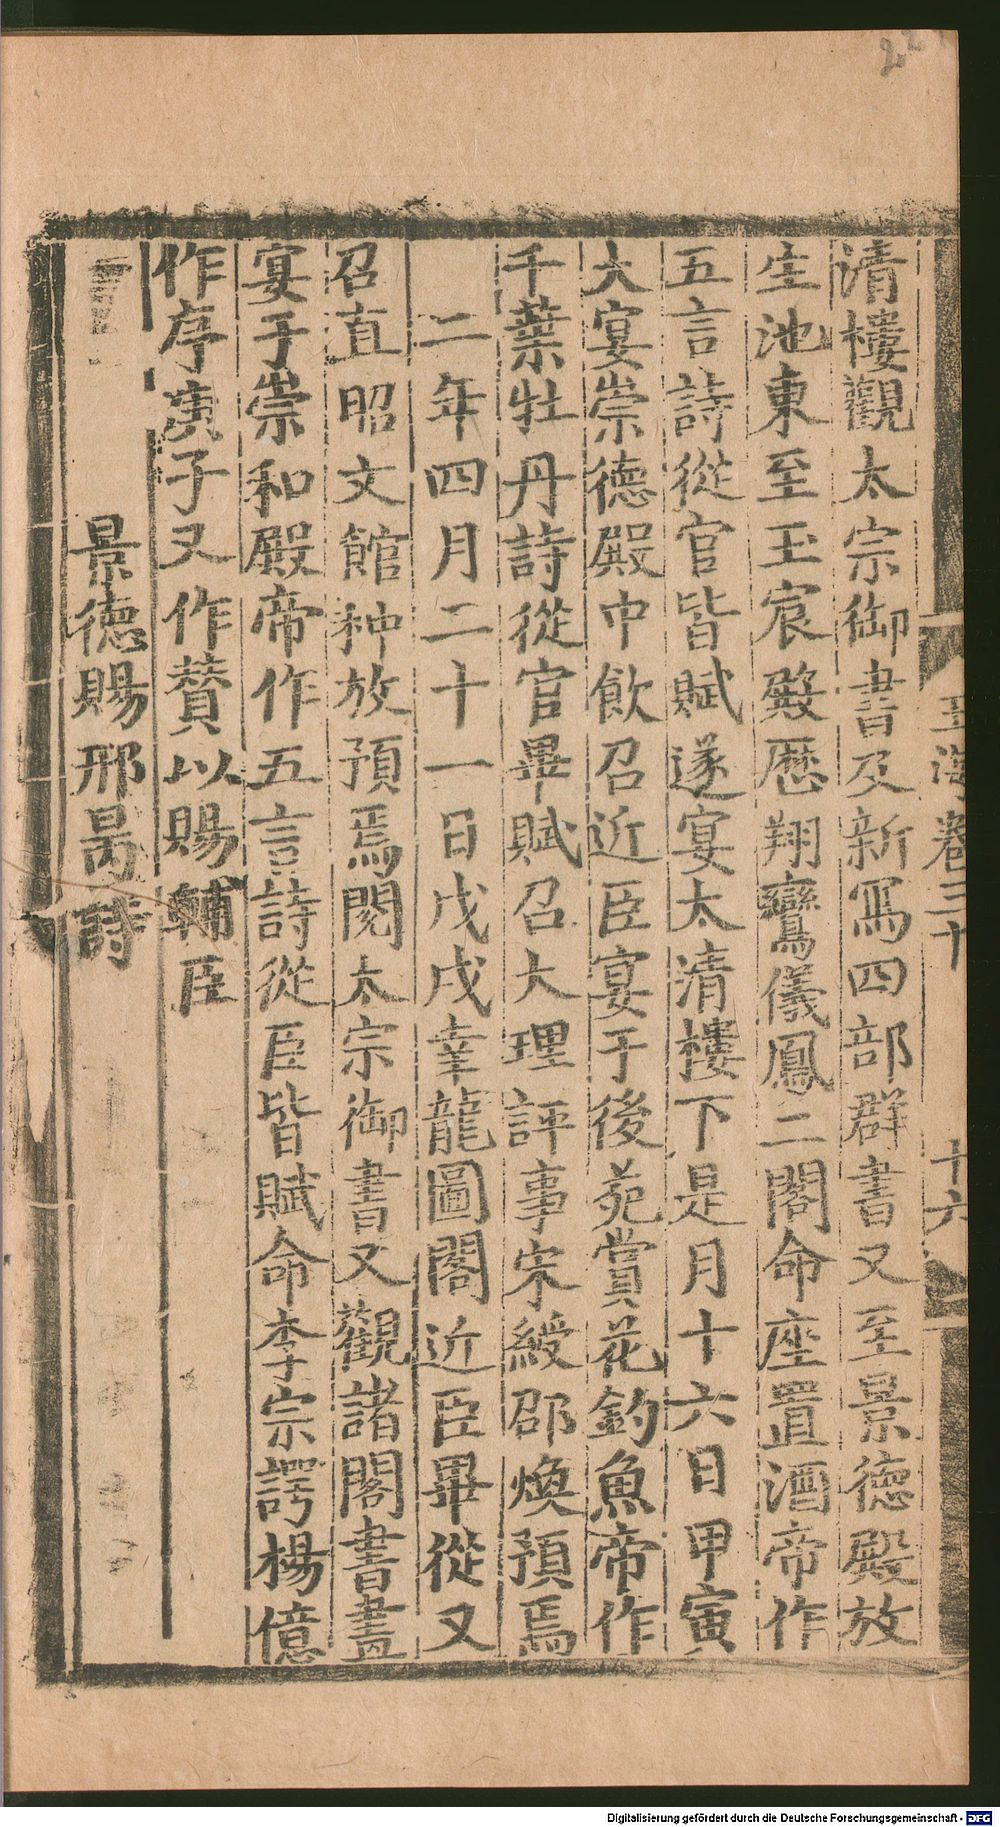 清樓觀太宗御書及新寫四部群書又至景德殿放
生池東至玉宸殿歷翔鸞儀鳳二閣命座置酒帝作
五言詩從官皆賦遂宴太清樓下是月十六日甲寅
大宴崇德殿中飲召近臣宴于後苑賞花釣魚帝作
千葉牡丹詩從官畢賦召大理評事宋綬邵煥預焉
二年四月二十一日戊戌幸龍圖閣近臣畢從又
召直昭文館种放預焉閱太宗御書又觀諸閣書畫
宴于崇和殿帝作五言詩從臣皆賦命李宗諤楊億
作序庚子又作贊以賜輔臣
景德賜邢昺詩
玉海卷三十
十六
Digitalisierung gefördert durch die Deutsche Forschungsgemeinschaft - DFG